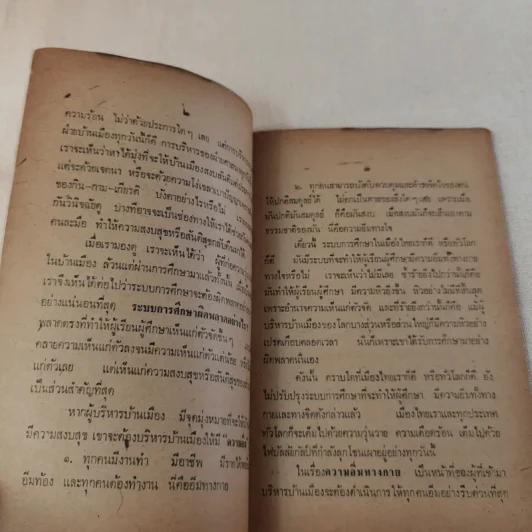 ความร้อน ไม่ว่าด้วยประการใด ๆ เลย แต่การบริหาร
ฝ่ายบ้านเมืองทุกวันนี้ก็ดี การบริหารของฝ่ายศาสนา
เราจะเห็นว่าหาได้มุ่งที่จะให้บ้านเมืองสงบสันติ
แต่จะด้วยเจตนา หรือจะด้วยความโง่เขลาเบาปัญญา
ของกิน-กาม-เกียรติ บังตาอย่างไรหรือไม่
กันวินิจฉัยดู บางทีอาจจะเป็นช่องทางให้เราได้
คนละมือ ทำให้ความสงบสุขหรือสันติสุขกลับคืนมาได้
เมื่อเรามองดู เราจะเห็นได้ว่า ผู้ที่ก่อความ
ในบ้านเมือง ล้วนแต่ผ่านการศึกษามาแล้วทั้งนั้น
เราจึงเห็นได้ต่อไปว่าระบบการศึกษาจะต้องผิดพลาด
อย่างแน่นอนที่สุด ระบบการศึกษาผิดพลาดอย่างไร
พลาดตรงที่ทำให้ผู้เรียนผู้ศึกษาเห็นแก่ตัวจัดขึ้น ๆ
คลายความเห็นแก่ตัวลงจนมีความเห็นแก่ตัวแต่น้อย
แก่ตัวเลย แต่เห็นแก่ความสงบสุขหรือสันติสุขของ
เป็นส่วนสำคัญที่สุด
หากผู้บริหารบ้านเมือง มีจุดมุ่งหมายที่จะให้
มีความสงบสุข เขาจะต้องบริหารบ้านเมืองให้มี
๑. ทุกคนมีงานทำ มีอาชีพ มีรายได้
อิ่มท้อง และทุกคนต้องทำงาน นี่คืออิ่มทางกาย
๒. ทุกคนสามารถบังคับควบคุมและดำรงจิตใจของตน
ให้ปกติสมดุลย์ได้ ไม่ตกเป็นทาสของสิ่งใด ๆ เลย เพราะเมื่อ
มันปกติมันสมดุลย์ ก็คือมันสงบ เมื่อสงบมันก็จะอิ่มเองตาม
ธรรมชาติของมัน นี่คือความอิ่มทางใจ
เดี๋ยวนี้ ระบบการศึกษาในเมืองไทยเราก็ดี หรือทั่วโลก
ก็ดี มันมีระบบที่จะทำให้ผู้เรียนผู้ศึกษามีความอิ่มทั้งทางกาย
ทางใจหรือไม่ เราจะเห็นว่าไม่มีเลย ซ้ำร้ายยิ่งไปกว่านั้นก็คือ
มันทำให้ผู้เรียนผู้ศึกษา มีความหิวยิ่งขึ้น หิวอย่างไม่มีสิ้นสุด
เพราะอำนาจความเห็นแก่ตัวจัด และที่ร้ายยิ่งกว่านั้นก็คือ แม้ผู้
บริหารบ้านเมืองของโลกบางส่วนหรือส่วนใหญ่ก็มีความหิวอย่าง
เปรตเกือบตลอดเวลา นั่นก็เพราะเขาได้รับการศึกษามาอย่าง
ผิดพลาดนั่นเอง
ดังนั้น ตราบใดที่เมืองไทยเราก็ดี หรือทั่วโลกก็ดี ยัง
ไม่ปรับปรุงระบบการศึกษาที่จะทำให้ผู้ศึกษา มีความอิ่มทั้งทาง
กายและทางจิตดังกล่าวแล้ว เมืองไทยเราและทุกประเทศ
ทั่วโลกก็จะเต็มไปด้วยความวุ่นวาย ความเดือดร้อน เต็มไปด้วย
ไฟบัลลังก์ลัปที่กำลังลุกโชนเผาผู้อยู่อย่างทุกวันนี้
ในเรื่องความอิ่มทางกาย เป็นหน้าที่ของผู้ที่เข้ามา
บริหารบ้านเมืองจะต้องดำเนินการ ให้ทุกคนอิ่มอย่างรีบด่วนที่สุด